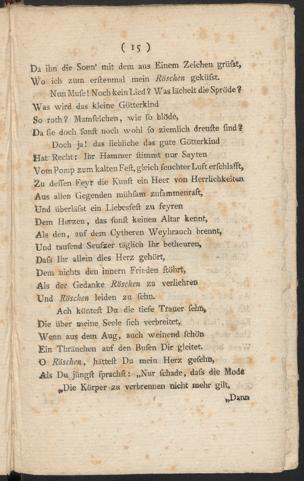 ( 15 )
Da ihn die Sonn' mit dem aus Einem Zeichen grüsst,
Wo ich zum erstenmal mein Röschen geküsst.
Nun Muse! Noch kein Lied? Was lächelt die Spröde?
Was wird das kleine Götterkind
So roth? Mamselchen, wie so blöde,
Da sie doch sonst noch wohl so ziemlich dreuste sind?
Doch ja! das liebliche das gute Götterkind
Hat Recht: Ihr Hammer stimmt nur Sayten
Vom Pomp zum kalten Fest, gleich feuchter Luft erschlafft,
Zu dessen Feyr die Kunst ein Heer von Herrlichkeiten
Aus allen Gegenden mühsam zusammenraft,
Und überlässt ein Liebesfest zu feyren
Dem Herzen, das sonst keinen Altar kennt,
Als den, auf dem Cytheren Weyhrauch brennt,
Und tausend Seufzer täglich Ihr betheuren,
Dass Ihr allein dies Herz gehört,
Dem nichts den innern Frieden stöhrt,
Als der Gedanke Röschen zu verliehren
Und Röschen leiden zu sehn.
Ach küntest Du die tiefe Trauer sehn,
Die über meine Seele sich verbreitet,
Wenn aus dem Aug, auch weinend schön
Ein Thränchen auf den Busen Dir gleitet.
O Röschen, hättest Du mein Herz gesehn,
Als Du jüngst sprachst: „Nur schade, dass die Mode
„Die Körper zu verbrennen nicht mehr gilt,
„Dann